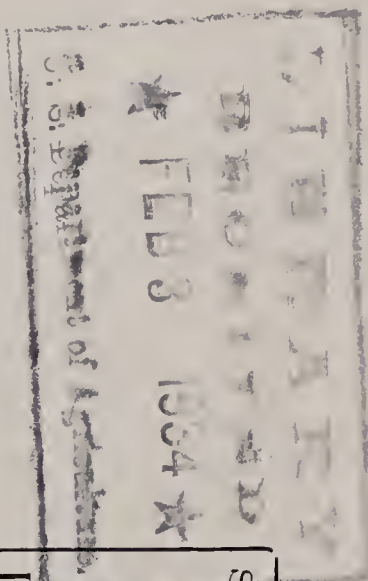 LIBRARY
RECEIVED
★ FEB 3 ★
U. S. Department of Agriculture